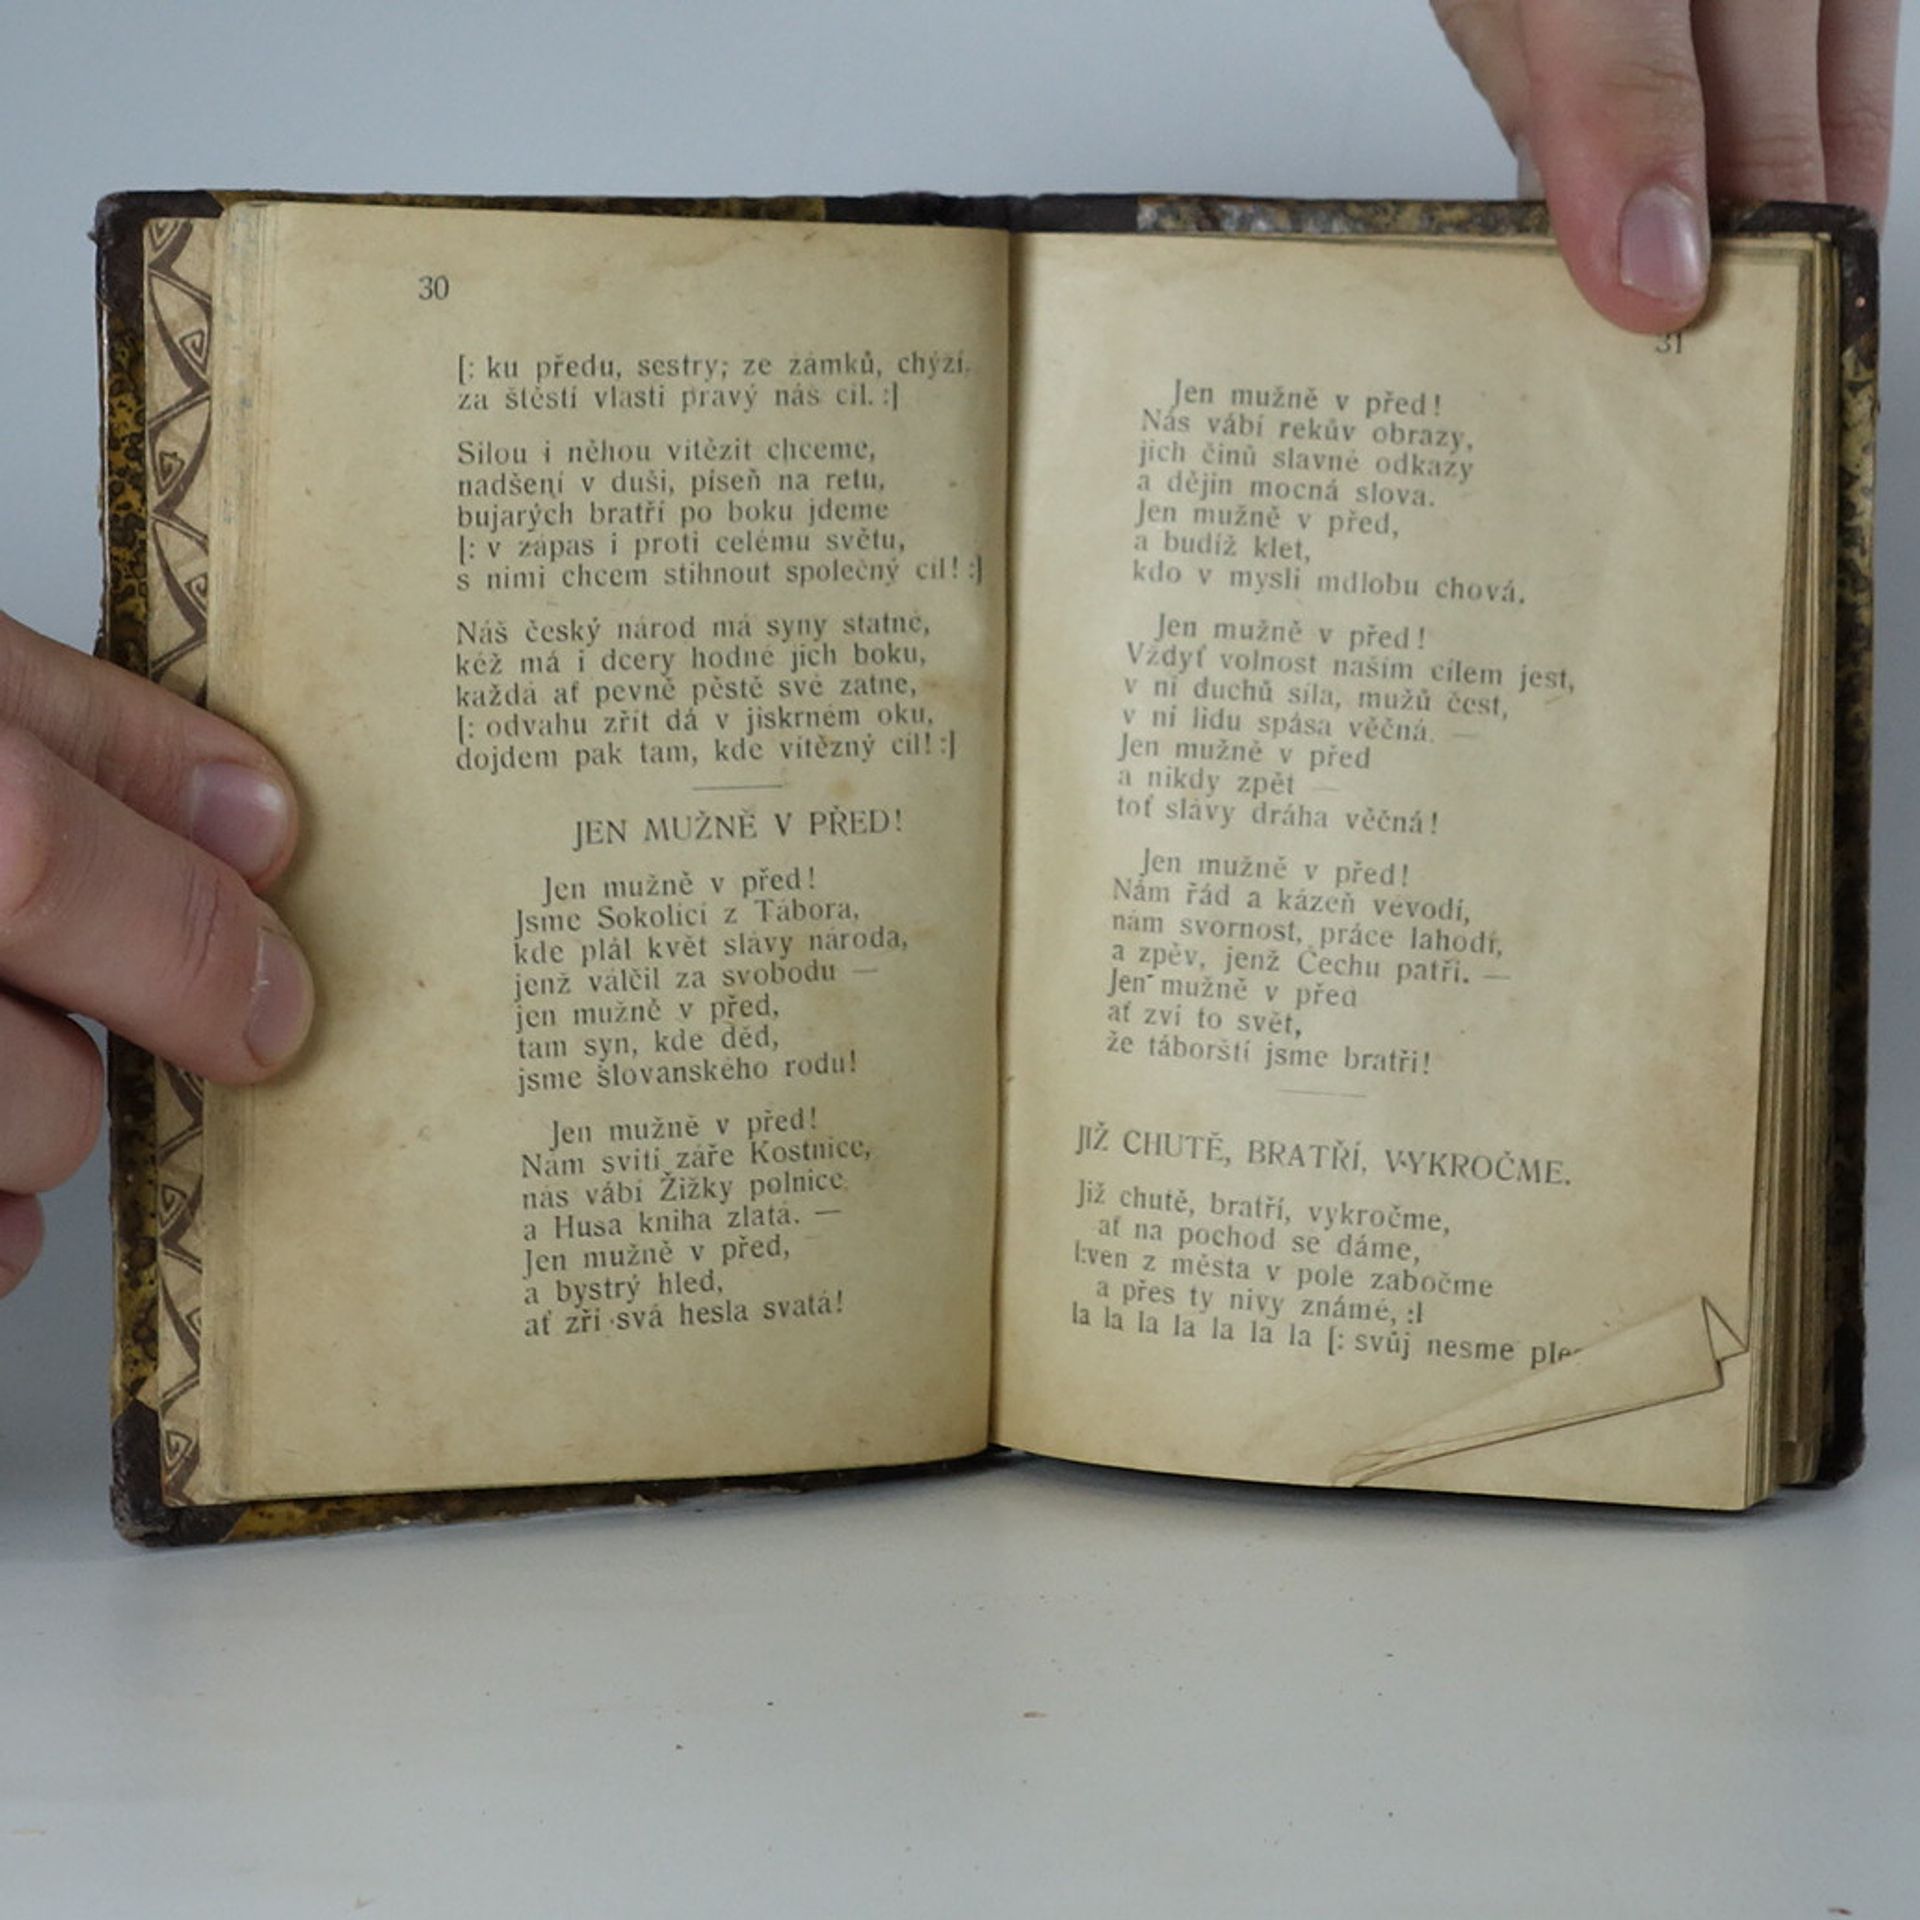 30
[: ku předu, sestry; ze zámků, chýží,
za štěstí vlasti pravý náš cíl. :]
Silou i něhou vítězit chceme,
nadšení v duši, píseň na retu,
bujarých bratří po boku jdeme
[: v zápas i proti celému světu,
s nimi chcem stihnout společný cíl! :]
Náš český národ má syny statné,
kéž má i dcery hodné jich boku,
každá ať pevně pěstě své zatne,
[: odvahu zřít dá v jiskrném oku,
dojdem pak tam, kde vítězný cíl! :]
JEN MUŽNĚ V PŘED!
Jen mužně v před!
Jsme Sokolíci z Tábora,
kde plál květ slávy národa,
jenž válčil za svobodu —
jen mužně v před,
tam syn, kde děd,
jsme slovanského rodu!
Jen mužně v před!
Nám svítí záře Kostnice,
nás vábí Žižky polnice
a Husa kniha zlatá. —
Jen mužně v před,
a bystrý hled,
ať zří svá hesla svatá!
31
Jen mužně v před!
Nás vábí rekův obrazy,
jich činů slavné odkazy
a dějin mocná slova.
Jen mužně v před,
a budiž klet,
kdo v mysli mdlobu chová.
Jen mužně v před!
Vždyť volnost naším cílem jest,
v ní duchů síla, mužů čest,
v ní lidu spása věčná. —
Jen mužně v před
a nikdy zpět —
toť slávy dráha věčná!
Jen mužně v před!
Nám řád a kázeň vévodí,
nám svornost, práce lahodí,
a zpěv, jenž Čechu patří. —
Jen mužně v před
ať zví to svět,
že táborští jsme bratři!
JIŽ CHUTĚ, BRATŘÍ, VYKROČME.
Již chutě, bratří, vykročme,
ať na pochod se dáme,
[:ven z města v pole zabočme
a přes ty nivy známé, :]
la la la la la la la [: svůj nesme